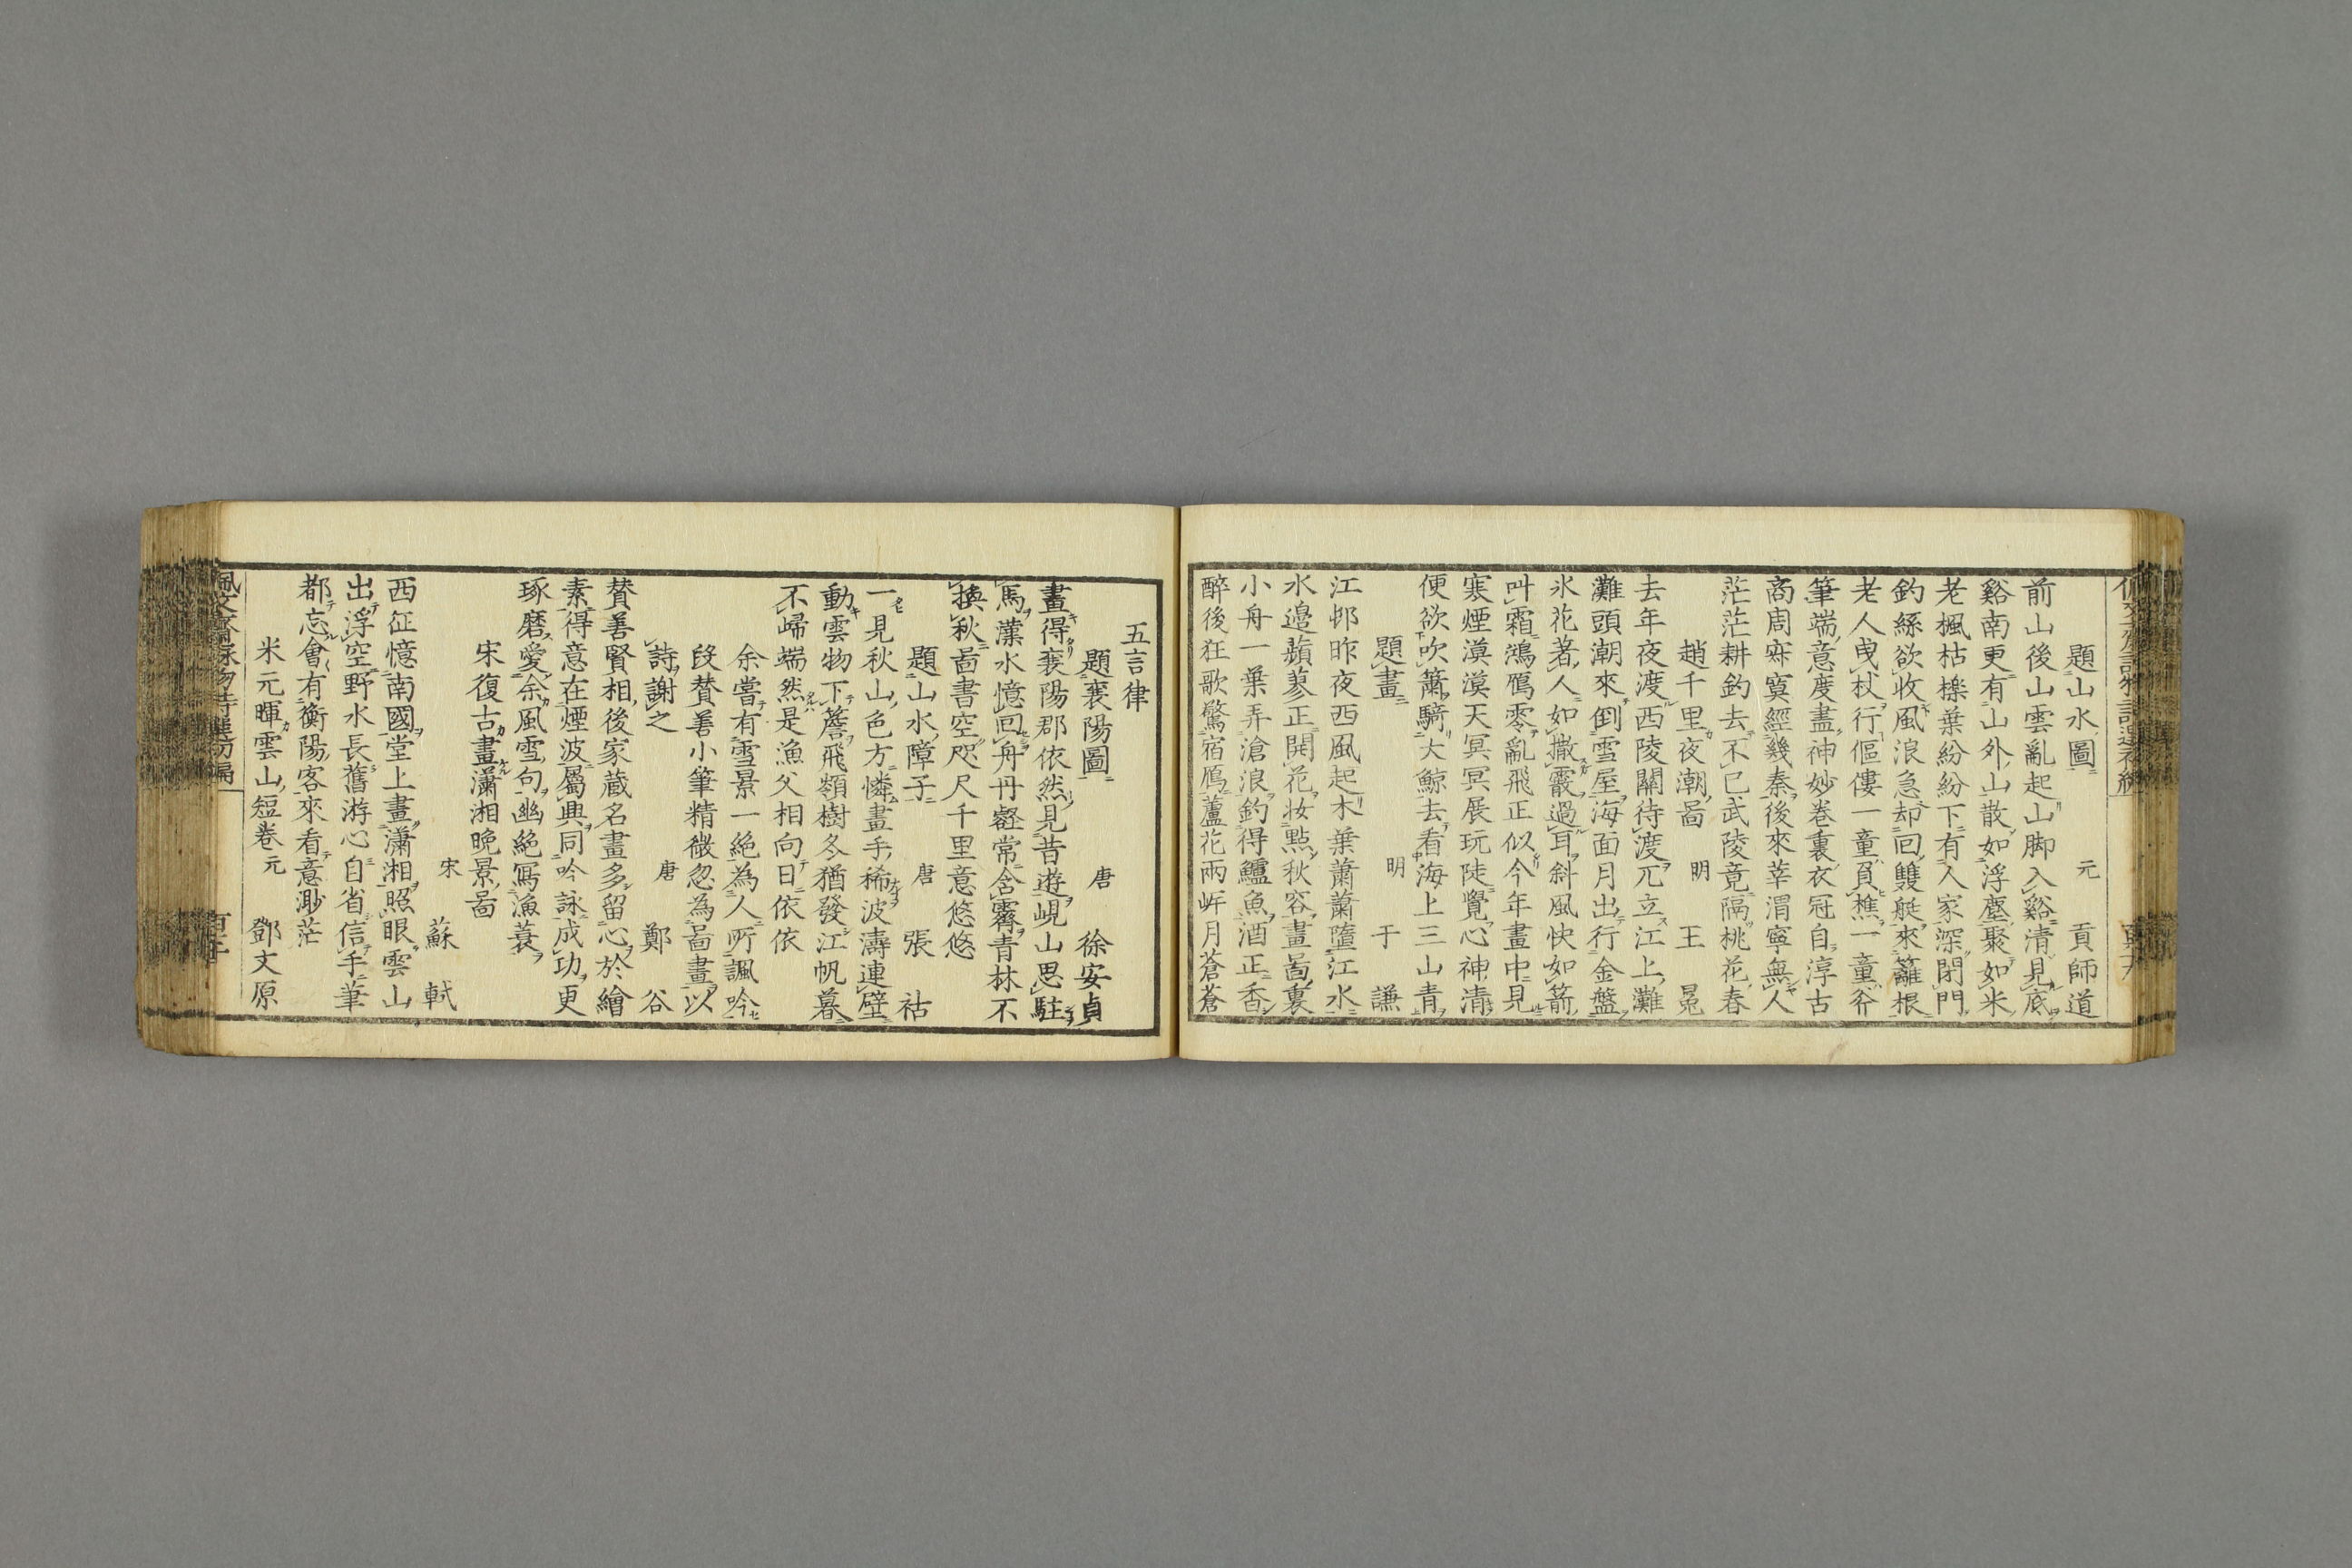 題山水圖 元 貢師道
前山後山雲亂起山脚入谿清見底
谿南更有山外山散如浮塵聚如米
老楓枯櫟葉紛紛下有人家深閉門
釣絲欲收風浪急却回雙艇來籬根
老人曳杖行傴僂一童負樵一童斧
筆端意度盡神妙卷裏衣冠自淳古
商周寂寞經幾秦後來莘渭寧無人
茫茫耕釣去不已武陵竟隔桃花春
趙千里夜潮啚 明 王冕
去年夜渡西陵關待渡兀立江上灘
灘頭潮來倒雪屋海面月出行金盤
氷花著人如撒霰過耳斜風快如箭
叫霜鴻鴈零亂飛正似今年畫中見
寒煙漠漠天冥冥展玩陡覺心神清
便欲吹簫騎大鯨去看海上三山青
題畫 明 于謙
江邨昨夜西風起木葉蕭蕭墮江水
水邉蘋蓼正開花妝點秋容畫啚裏
小舟一葉弄滄浪釣得鱸魚酒正香
醉後狂歌驚宿鴈蘆花兩岸月蒼蒼
五言律
題襄陽圖 唐 徐安貞
畫得襄陽郡依然見昔遊峴山思駐
馬漢水憶回舟丹壑常含霽青林不
換秋啚書空咫尺千里意悠悠
題山水障子 唐 張祜
一見秋山色方憐畫手稀波濤連壁
動雲物下簷飛嶺樹冬猶發江帆暮
不歸端然是漁父相向日依依
余嘗有雪景一絕為人所諷吟
段贊善小筆精微忽為啚畫以
詩謝之 唐 鄭谷
贊善賢相後家蔵名畫多留心於繪
素得意在煙波屬興同吟詠成功更
琢磨愛余風雪句幽絕寫漁蓑
宋復古畫瀟湘晚景啚
宋 蘇軾
西征憶南國堂上畫瀟湘照眼雲山
出浮空野水長舊游心自省信手筆
都忘會有衡陽客來看意渺茫
米元暉雲山短卷 元 鄧文原